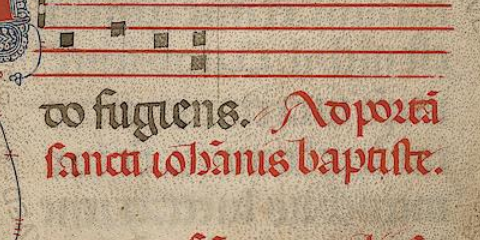 do fugiens. Ad portā
sancti ioħānis baptiste.